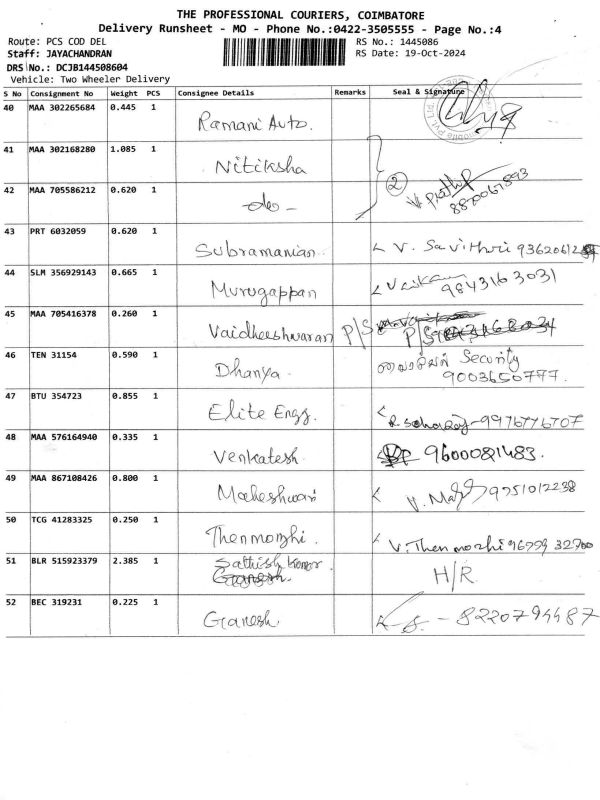 THE PROFESSIONAL COURIERS, COIMBATORE
Delivery Runsheet - MO - Phone No.:0422-3505555 - Page No.:4
Route: PCS COD DEL RS No.: 1445086
Staff: JAYACHANDRAN RS Date: 19-Oct-2024
DRS No.: DCJB144508604
Vehicle: Two Wheeler Delivery
S No Consignment No Weight PCS Consignee Details Remarks Seal & Signature
40 MAA 302265684 0.445 1 Ramani Auto.
41 MAA 302168280 1.085 1 Nitiksha
42 MAA 705586212 0.620 1 -do- 2
43 PRT 6032059 0.620 1 Subramanian V. Savithri
44 SLM 356929143 0.665 1 Murugappan 9843163031
45 MAA 705416378 0.260 1 Vaidheeshwaran P/S P/S
46 TEN 31154 0.590 1 Dhanya Security
9003650777.
47 BTU 354723 0.855 1 Elite Engg. 9976776707
48 MAA 576164940 0.335 1 Venkatesh 9600081483.
49 MAA 867108426 0.800 1 Maheshwari 9751012238
50 TCG 41283325 0.250 1 Thenmozhi. V. Thenmozhi 96999 32700
51 BLR 515923379 2.385 1 Sathish Kumar H/R
Ganesh.
52 BEC 319231 0.225 1 Ganesh - 8220794487